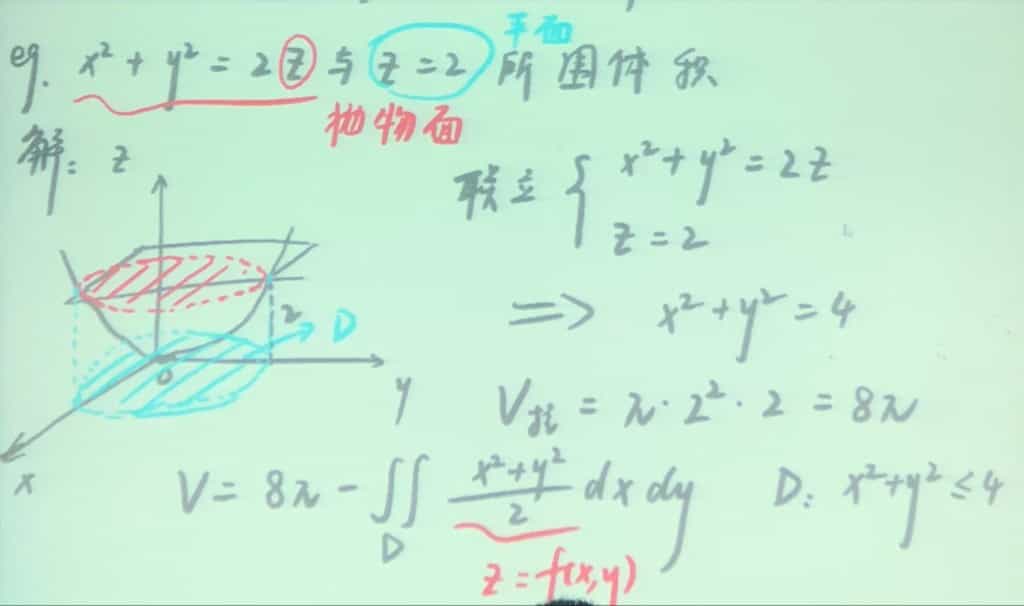 平面
eg. x² + y² = 2z 与 z = 2 所围体积
抛物面
解: z
联立 { x² + y² = 2z
z = 2
2
D
0
⇒ x² + y² = 4
y
V柱 = π · 2² · 2 = 8π
x
V = 8π - ∬_D (x² + y²)/2 dx dy D: x² + y² ≤ 4
z = f(x, y)